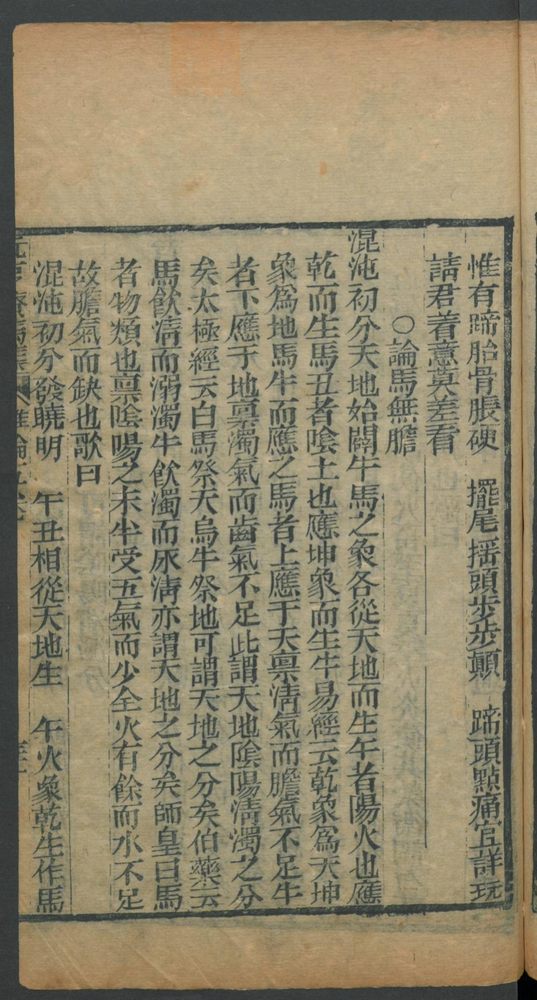 惟有蹄胎骨脹硬　擺尾揺頭步步顛　蹄頭㸃痛宜詳玩
請君着意莫差看
○論馬無膽
混沌初分天地始闢牛馬之象各從天地而生午者陽火也應
乾而生馬丑者陰土也應坤象而生牛易經云乾象爲天坤
象爲地馬牛而應之馬者上應于天禀清氣而膽氣不足牛
者下應于地禀濁氣而齒氣不足此謂天地陰陽清濁之分
矣太極經云白馬祭天烏牛祭地可謂天地之分矣伯藥云
馬飲清而溺濁牛飲濁而尿清亦謂天地之分矣師皇曰馬
者物類也禀陰陽之未半受五氣而少全火有餘而水不足
故膽氣而缺也歌曰
混沌初分發曉明　午丑相從天地生　午火象乾生作馬
元亨療馬集